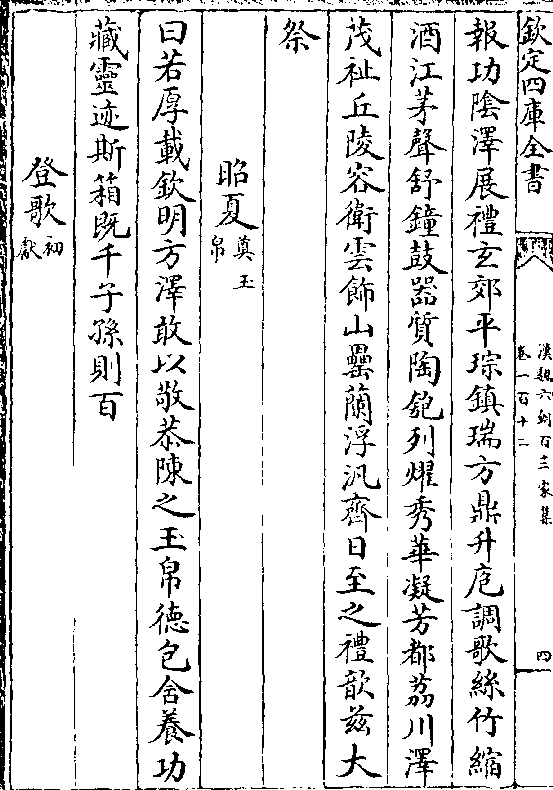 欽定四庫全書
漢魏六朝百三家集
卷一百十二
四
報功陰澤展禮玄郊平琮鎮瑞方鼎升庖調歌絲竹縮
酒江茅聲舒鐘鼓器質陶匏列燿秀華凝芳都荔川澤
茂祉丘陵容衛雲飾山罍蘭浮汎齊日至之禮歆茲大
祭
昭夏
奠玉
帛
曰若厚載欽明方澤敢以敬恭陳之玉帛德包含養功
藏靈迹斯箱既千子孫則百
登歌
初
獻